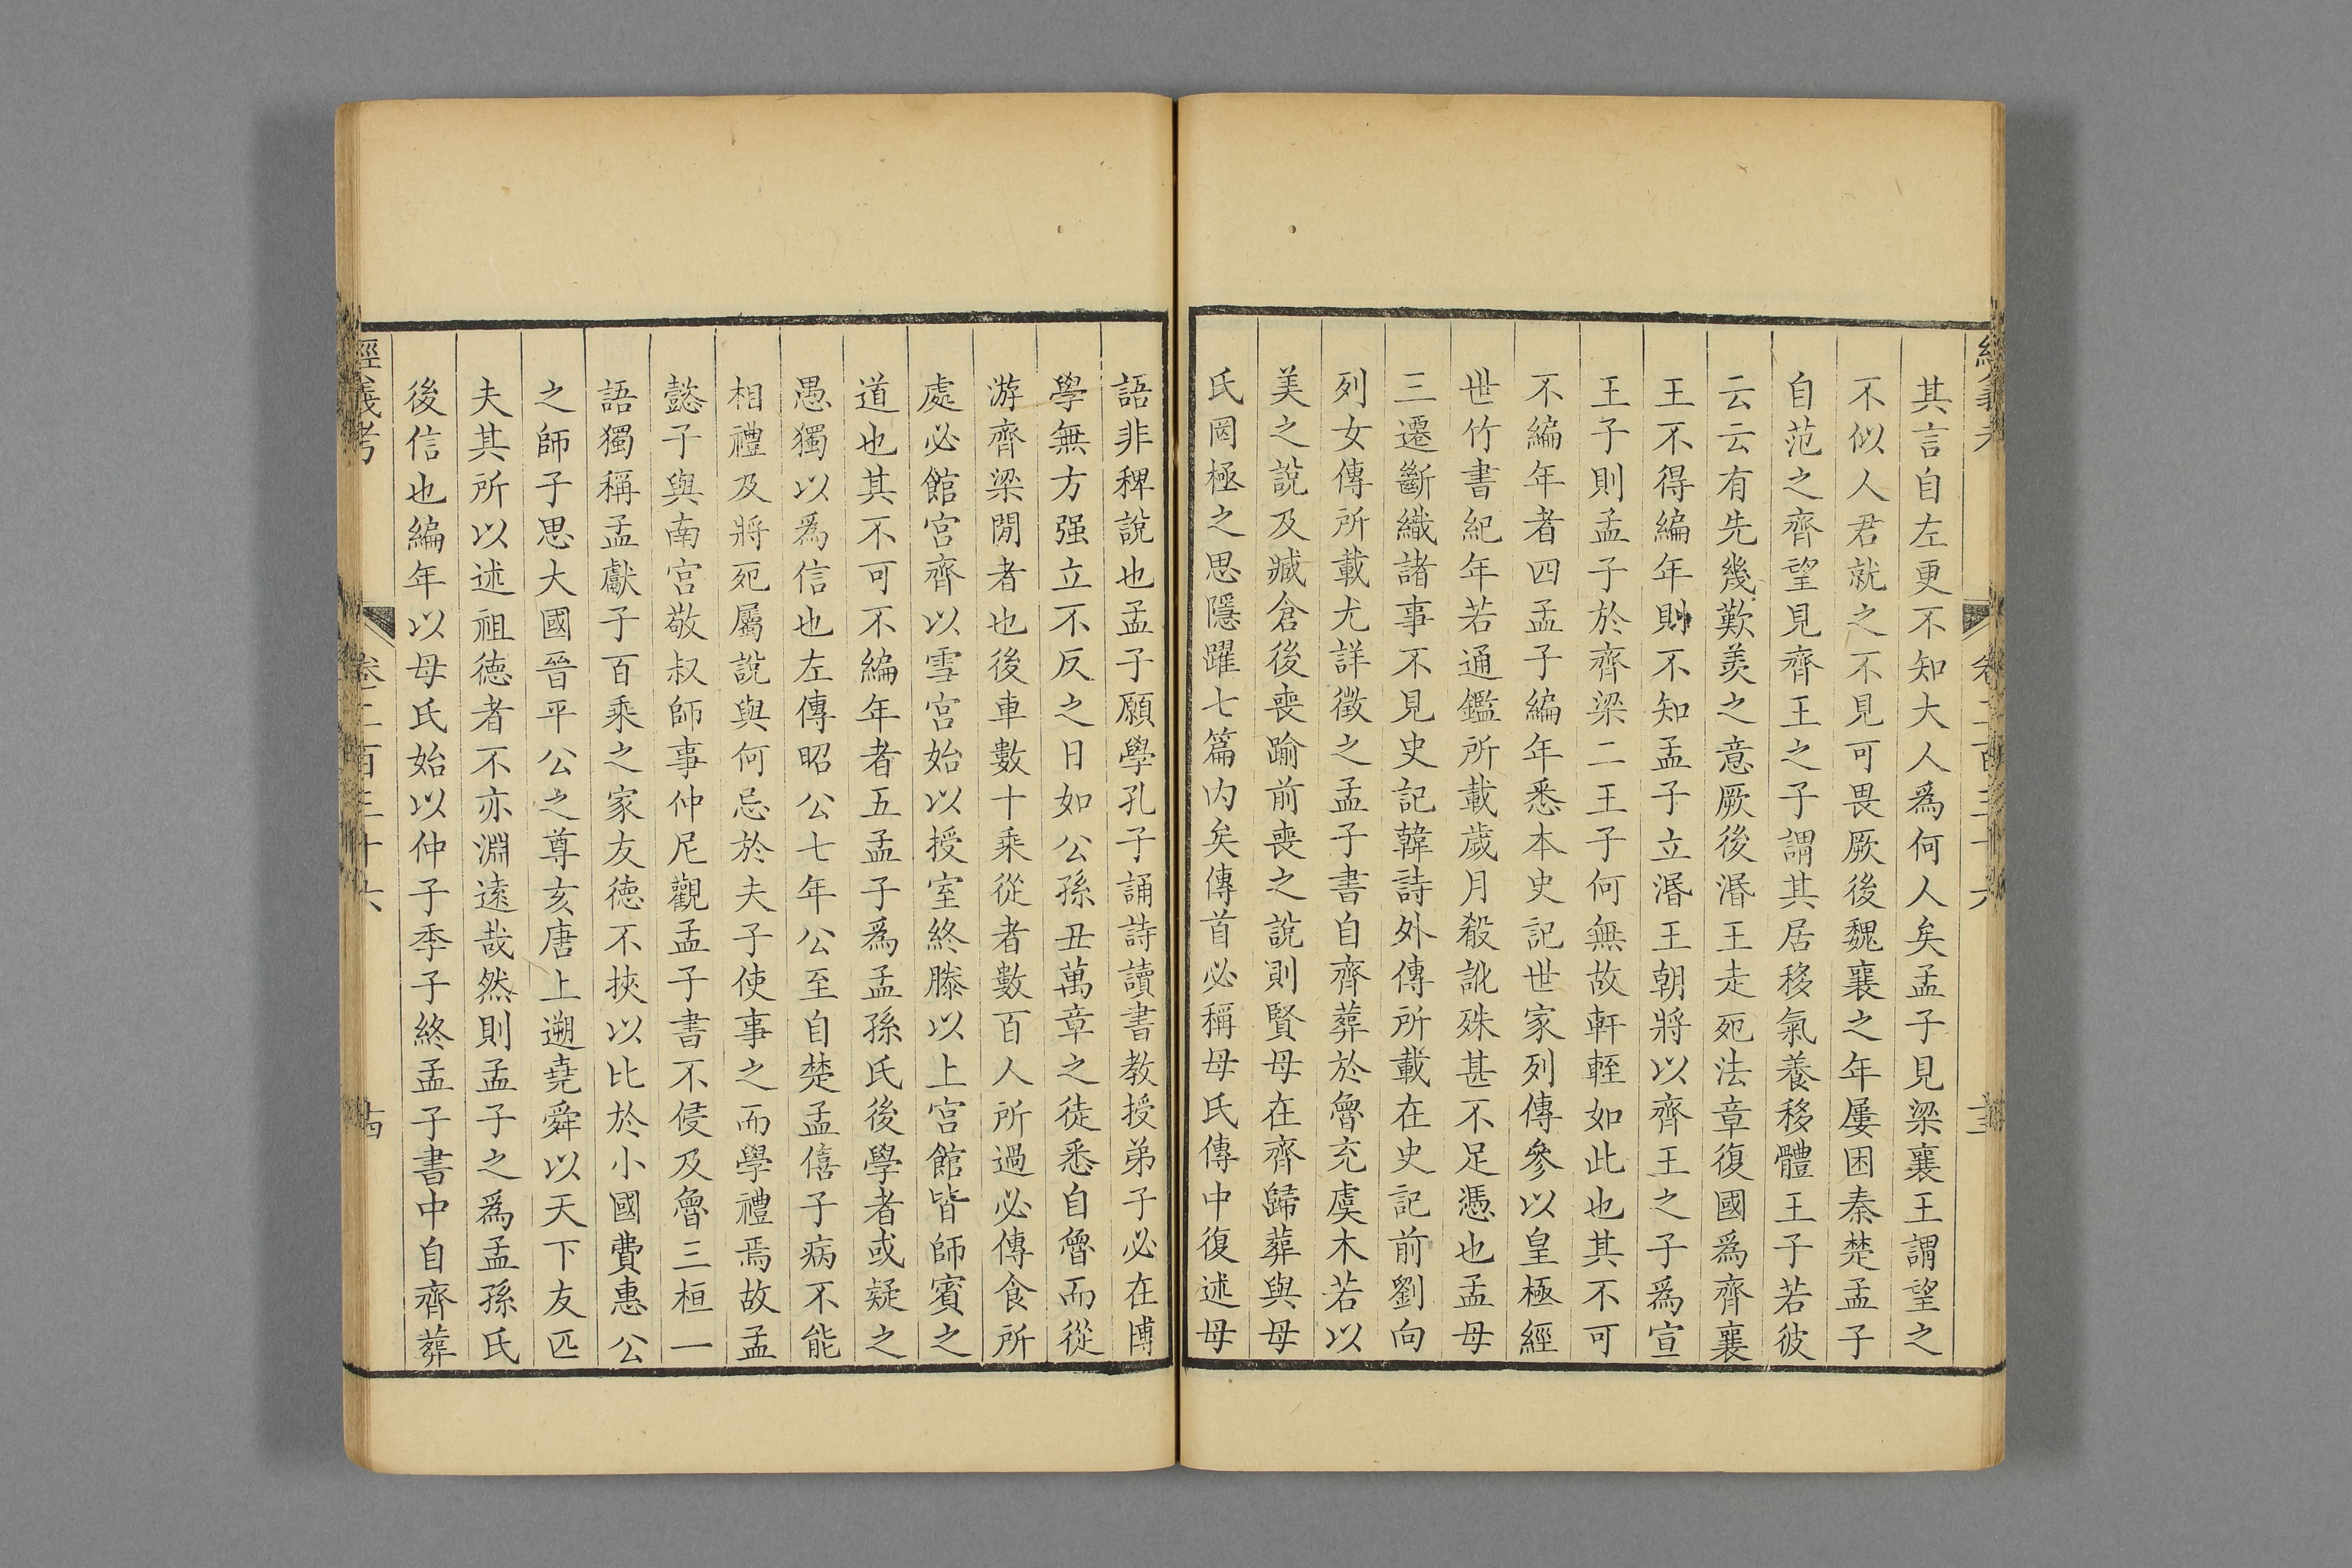 其言自左更不知大人爲何人矣孟子見梁襄王謂望之
不似人君就之不見可畏厥後魏襄之年屢困秦楚孟子
自范之齊望見齊王之子謂其居移氣養移體王子若彼
云云有先幾歎羨之意厥後湣王走死法章復國爲齊襄
王不得編年則不知孟子立湣王朝將以齊王之子爲宣
王子則孟子於齊梁二王子何無故軒輊如此也其不可
不編年者四孟子編年悉本史記世家列傳參以皇極經
世竹書紀年若通鑑所載歲月殽訛殊甚不足憑也孟母
三遷斷織諸事不見史記韓詩外傳所載在史記前劉向
列女傳所載尤詳徵之孟子書自齊葬於魯充虞木若以
美之說及臧倉後喪踰前喪之說則賢母在齊歸葬與母
氏罔極之思隱躍七篇内矣傳首必稱母氏傳中復述母
語非稗說也孟子願學孔子誦詩讀書教授弟子必在博
學無方强立不反之日如公孫丑萬章之徒悉自魯而從
游齊梁閒者也後車數十乘從者數百人所過必傳食所
處必館宫齊以雪宫始以授室終滕以上宫館皆師賓之
道也其不可不編年者五孟子爲孟孫氏後學者或疑之
愚獨以爲信也左傳昭公七年公至自楚孟僖子病不能
相禮及將死屬說與何忌於夫子使事之而學禮焉故孟
懿子與南宫敬叔師事仲尼觀孟子書不侵及魯三桓一
語獨稱孟獻子百乘之家友德不挾以比於小國費惠公
之師子思大國晉平公之尊亥唐上遡堯舜以天下友匹
夫其所以述祖德者不亦淵遠哉然則孟子之爲孟孫氏
後信也編年以母氏始以仲子季子終孟子書中自齊葬
經義考 卷二百三十六 十四